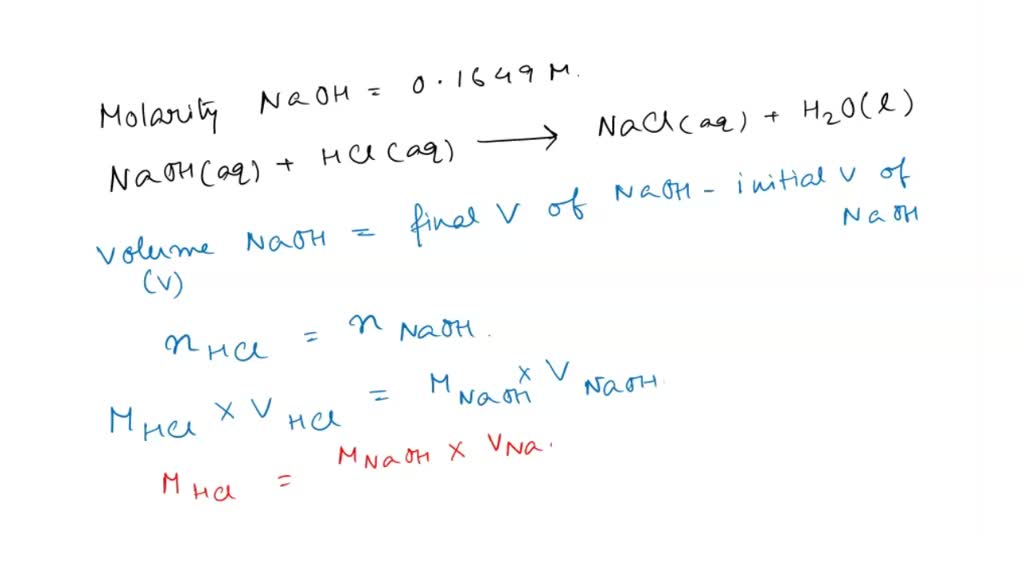 Molarity NaOH = 0.1649 M.
NaOH(aq) + HCl(aq) ⟶ NaCl(aq) + H₂O(l)
Volume NaOH = final V of NaOH - initial V of NaOH
(V)
n HCl = n NaOH.
M HCl × V HCl = M NaOH × V NaOH.
M HCl = M NaOH × V Na.